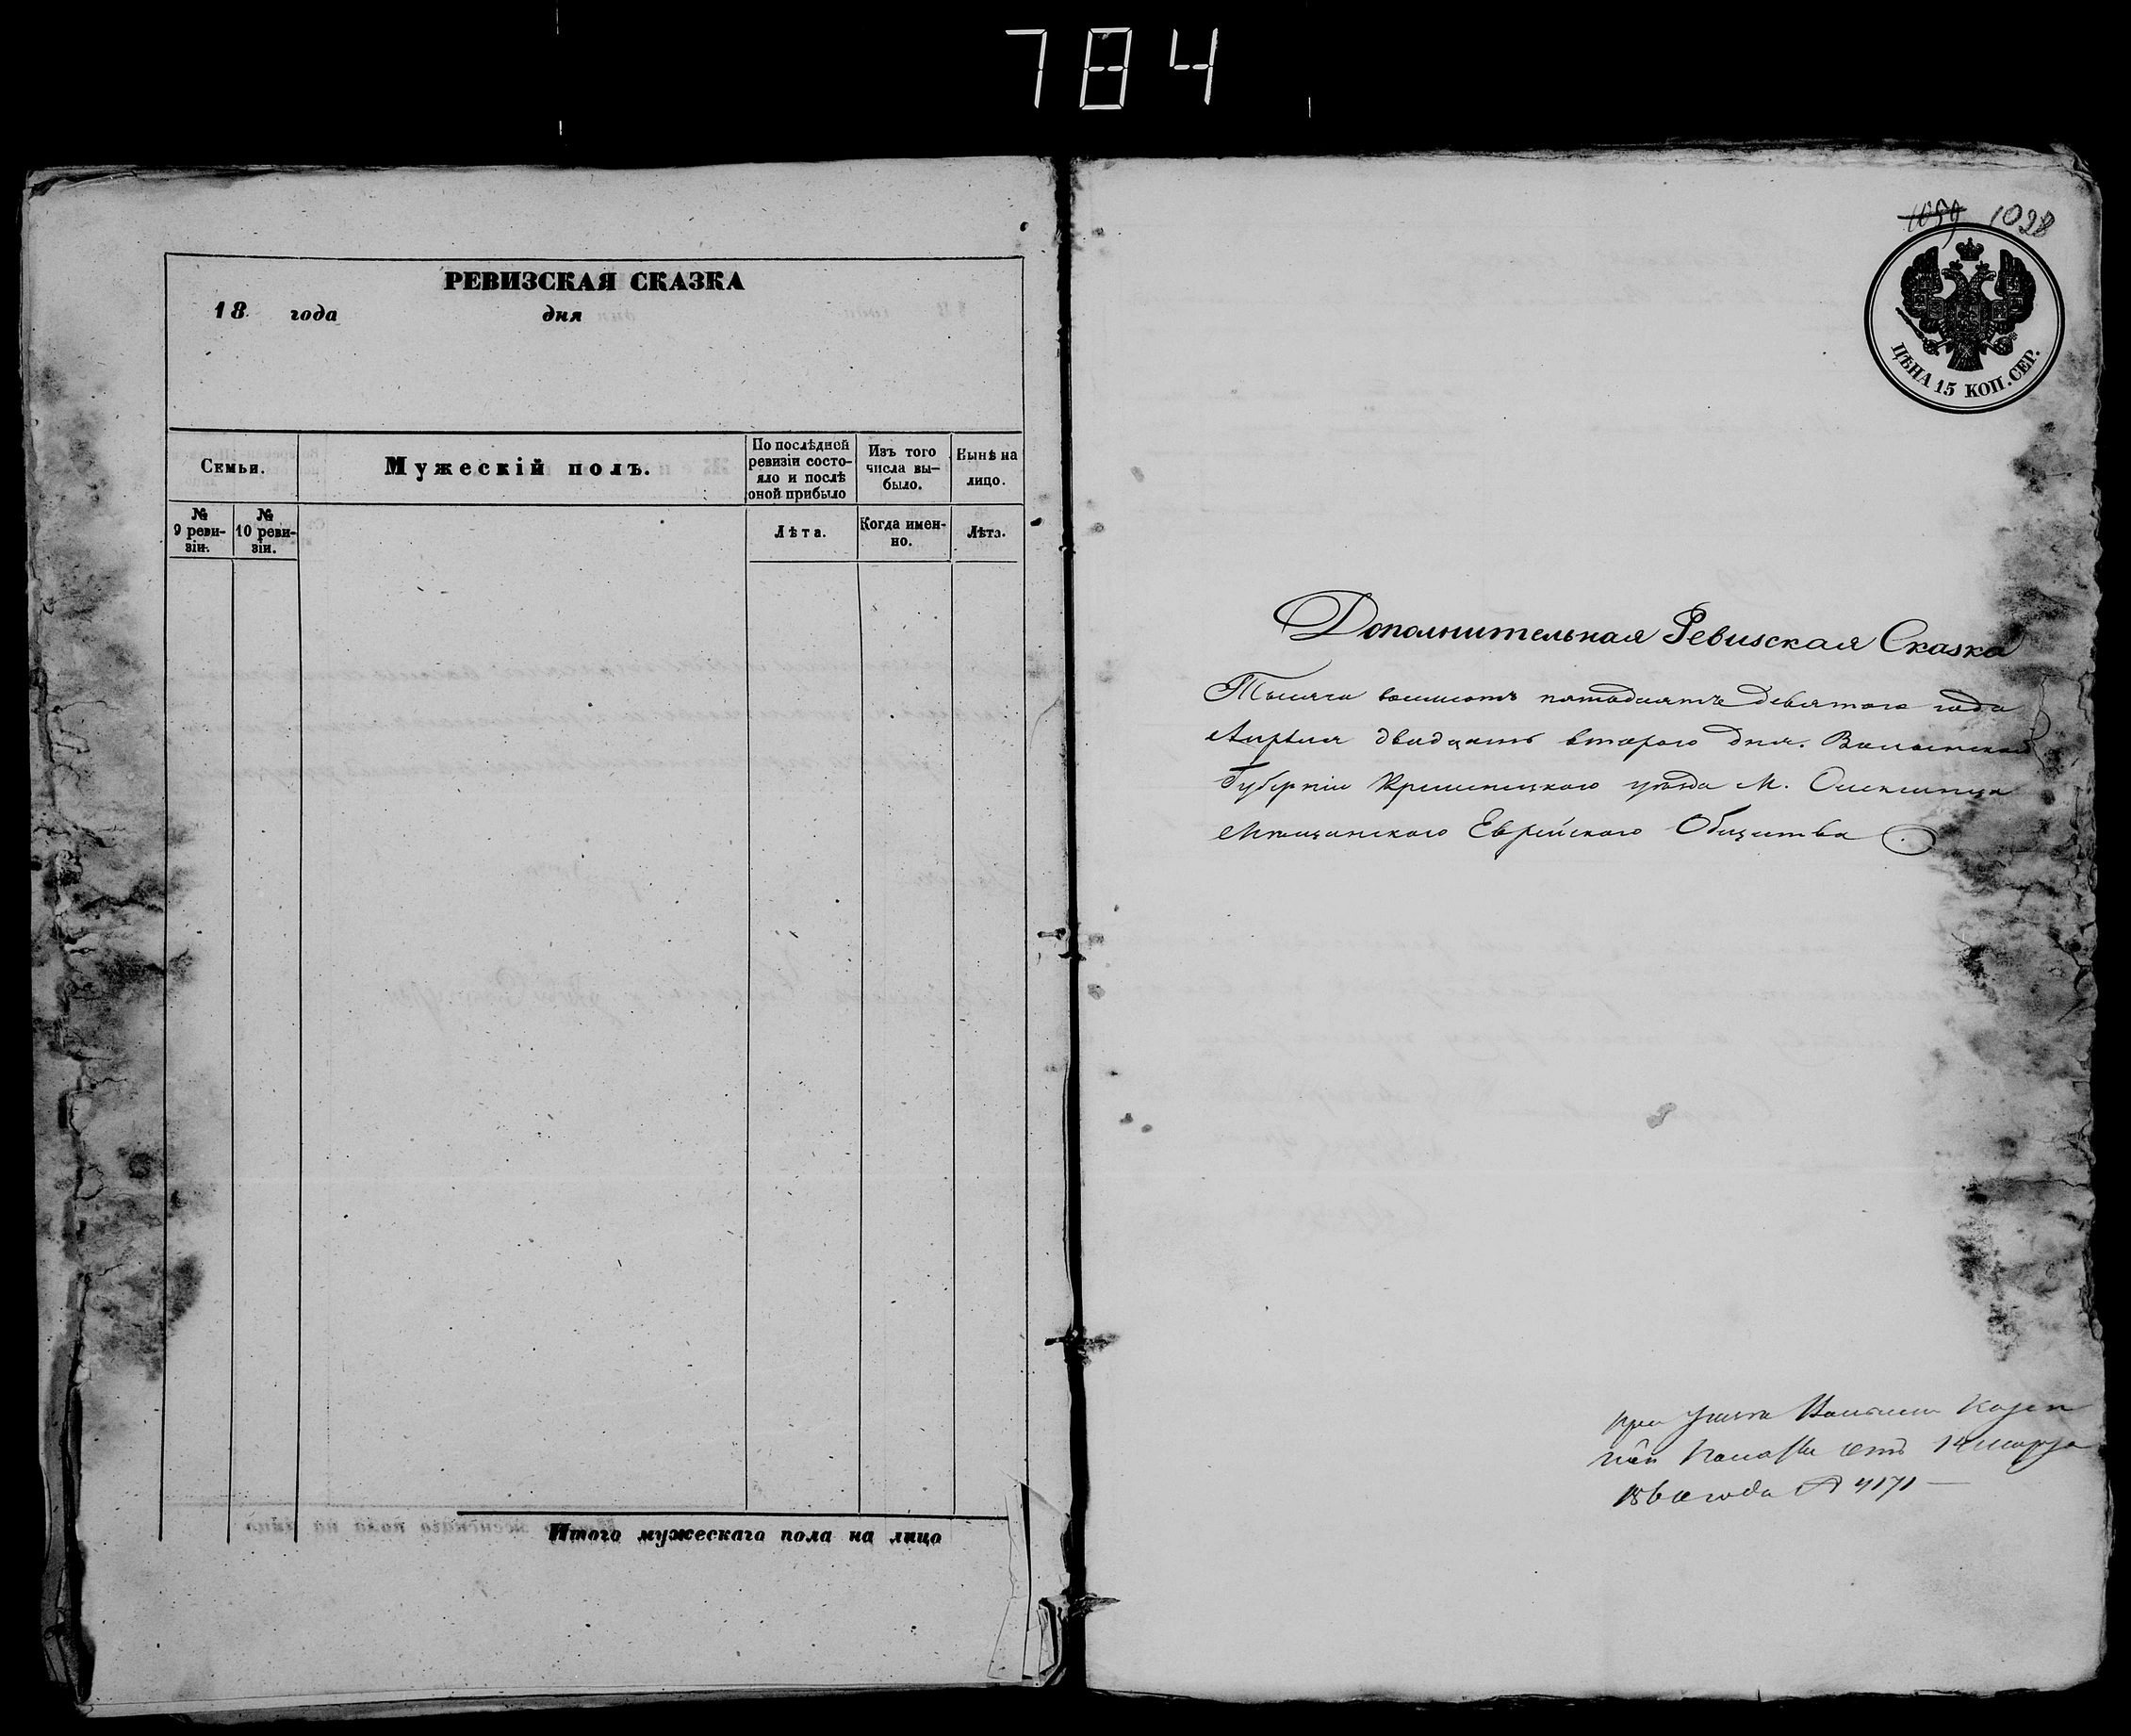 784
РЕВИЗСКАЯ СКАЗКА
18 года дня
Семьи.
Мужескій полъ.
По послѣдней ревизіи состо-
яло и послѣ
оной прибыло
Изъ того
числа вы-
было.
Нынѣ на
лицо.
№
9 реви-
зіи.
№
10 реви-
зіи.
Лѣта.
Когда имен-
но.
Лѣта.
Итого мужескаго пола на лицо
1059 1028
ЦѢНА 15 КОП. СЕР.
Дополнительная Ревизская Сказка
Тысяча восемьсотъ пятьдесятъ девятого года
Апрѣля двадцать второго дня. Волынской
Губерніи Кременецкого уѣзда М. Олексинца
Мѣщанского Еврейского Общества
при указѣ Волынской Казен
ной Палаты отъ 14 марта
1860 года № 4171